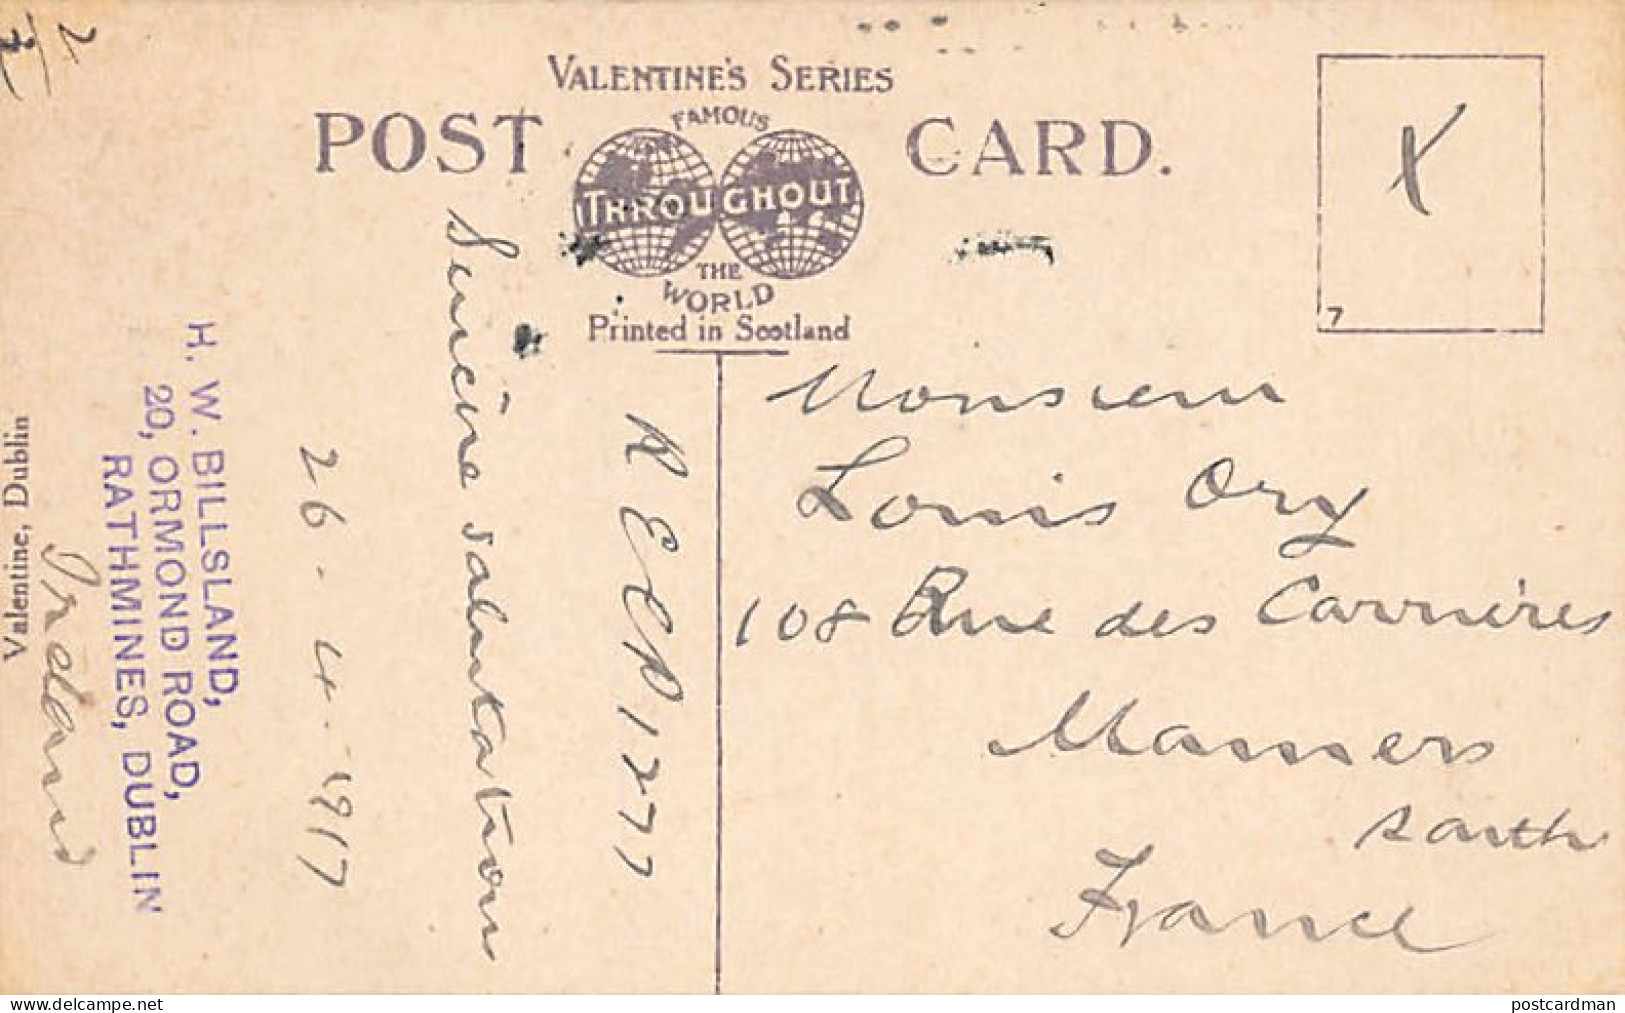 VALENTINE'S SERIES
POST CARD.
FAMOUS
THROUGHOUT
THE
WORLD
Printed in Scotland
7
X
Monsieur
Louis Ory
108 Rue des Carrières
Mamers
Sarthe
France
R E C P 1277
Sincère salutations
26-4-1917
H. W. BILLSLAND,
20, ORMOND ROAD,
RATHMINES, DUBLIN
Ireland
Valentine, Dublin
www.delcampe.net
postcardman